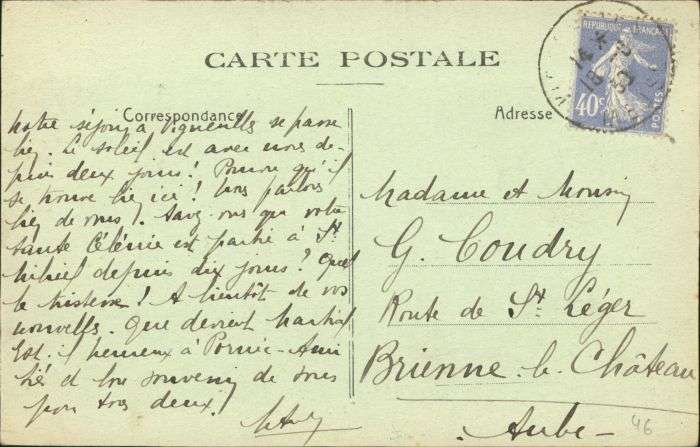 CARTE POSTALE
Correspondance
Adresse
REPUBLIQUE FRANCAISE
40c
POSTES
14
18
32
Notre séjour à Vigneulles se passe
bien. Le soleil est avec nous de-
puis deux jours! Pourvu qu'il
se trouve bien ici! Nous parlons
de vous! Savez-vous que votre
tante Célénie est partie à St
Mihiel depuis dix jours? Quel
le tristesse! A bientôt de vos
nouvelles. Que devient Martial
Est-il heureux à Pornic - Ami
tiés et bon souvenir de nous
pour tous deux!
Madame et Monsieur
G. Coudry
Route de St Léger
Brienne-le-Château
Aube
46